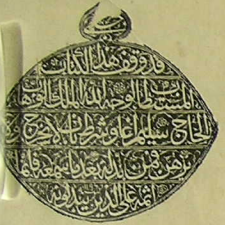 قد وقف هذا الكتاب
المستطاب طالبا لوجه الله الملك الوهاب
الحاج سليم اغا وشرط ان لا يخرج
يرهن فمن بدله بعد ما سمعه فانما
اثمه على الذين يبدلونه